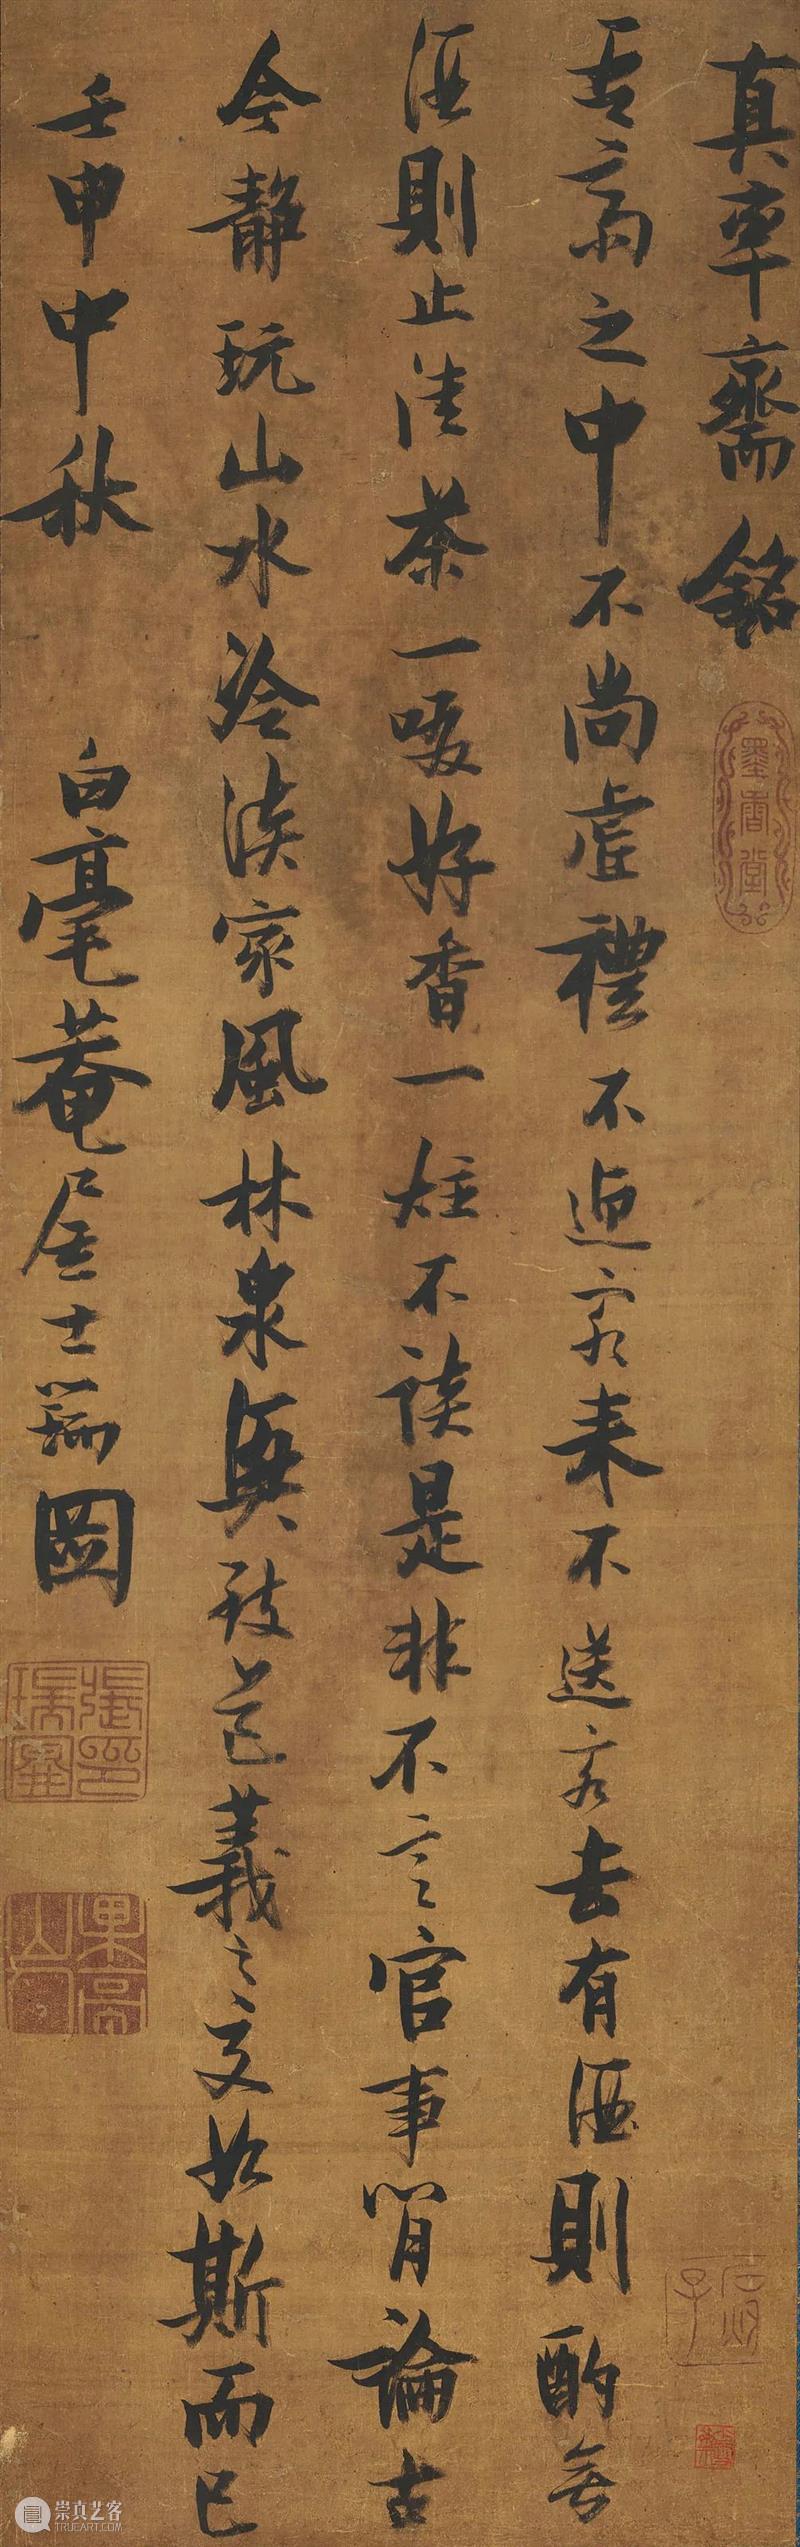 真率齋銘
墨香堂
吾齋之中不尚虛禮不迎客来不送客去有酒則酌無
酒則止清茶一啜好香一炷不談是非不言官事閒論古
今靜玩山水冷淡家風林泉興致道義之交如斯而已
壬申中秋 白毫菴居士瑞圖
張瑞圖印
果亭山人
崇真艺客
WWW.TRUEART.COM